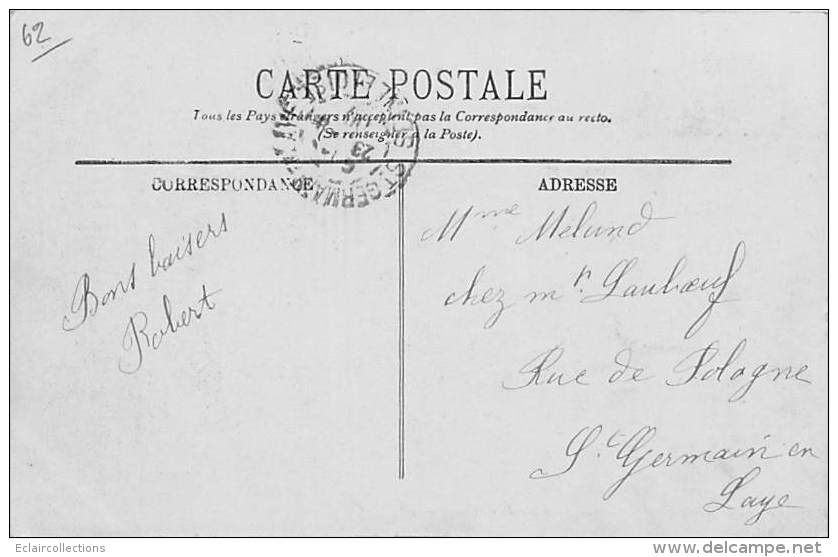 62
CARTE POSTALE
Tous les Pays étrangers n'acceptent pas la Correspondance au recto.
(Se renseigner à la Poste).
CORRESPONDANCE
ADRESSE
Bons baisers
Robert
Mme Melund
chez mr. Lauboeuf
Rue de Pologne
St Germain en
Laye
ST GERMAIN
23
Eclaircollections
www.delcampe.net